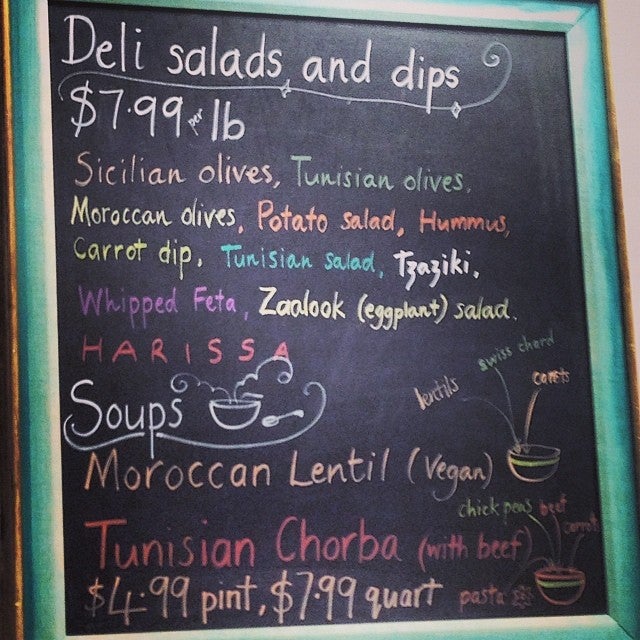 Deli salads and dips
$7.99 per lb
Sicilian olives, Tunisian olives,
Moroccan olives, Potato salad, Hummus,
Carrot dip, Tunisian salad, Tzaziki,
Whipped Feta, Zaalook (eggplant) salad.
HARISSA
Soups
lentils swiss chard carots
Moroccan Lentil (Vegan)
chick peas beef carrot
Tunisian Chorba (with beef)
$4.99 pint, $7.99 quart pasta